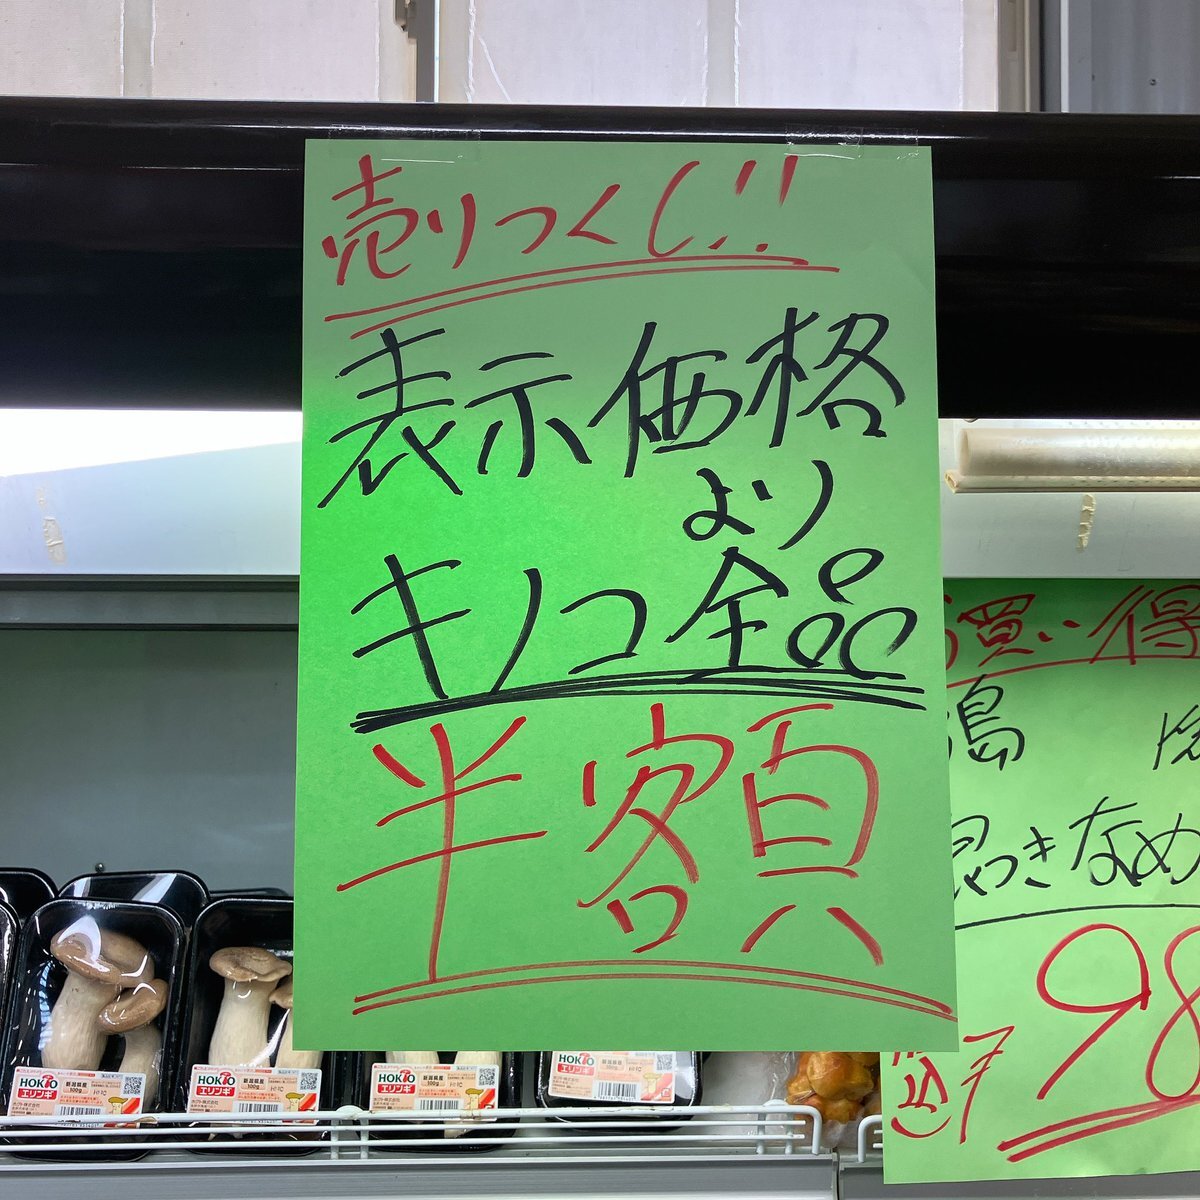 売りつくし!!
表示価格
より
キノコ全品
半額
買い得
島
つきなめ
98
HOKTO
エリンギ
新潟県産
100g
HOKTO
エリンギ
新潟県産
100g
HOKTO
エリンギ
新潟県産
100g
HOKTO
エリンギ